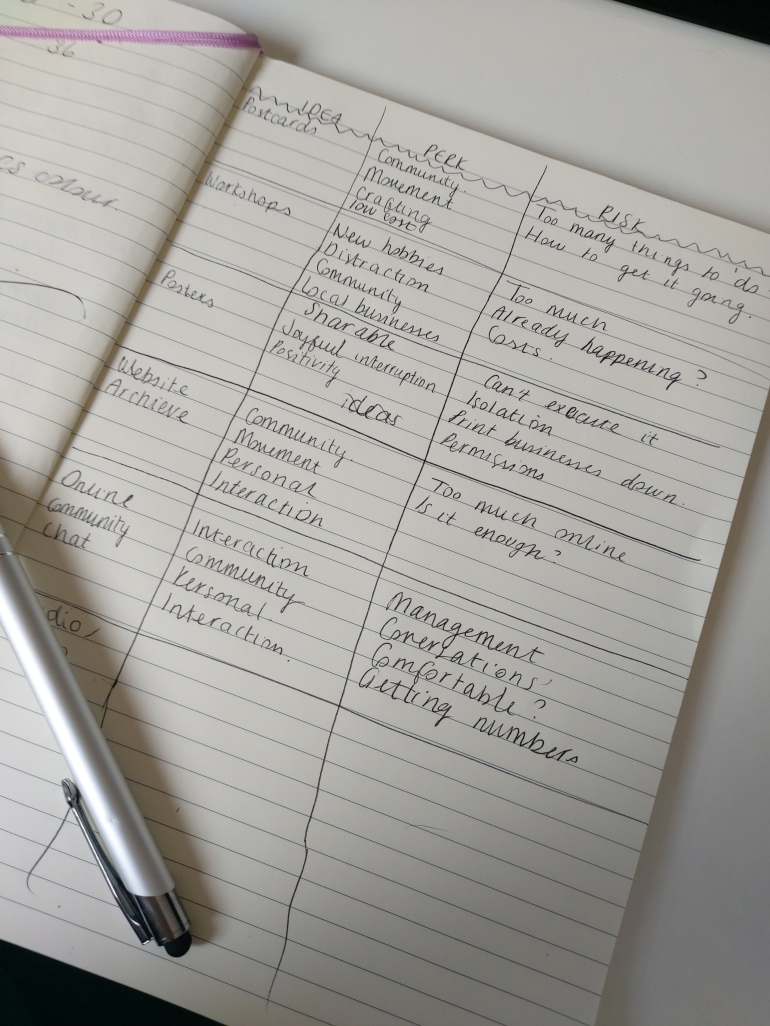 -30
36
colour.
IDEA
PERK
RISK
Postcards
Community.
Movement
Crafting
low cost
Too many things to do.
How to get it going.
Workshops
New hobbies
Distraction
Community
Local businesses
Too much
Already happening?
Costs.
Posters
Sharable
Joyful interruption
Positivity
ideas
Can't execute it
Isolation
Print businesses down.
Permissions
Website
Archieve
Community
Movement
Personal
Interaction
Too much online
Is it enough?
Online
Community
Chat
Interaction
Community
Personal.
Interaction.
Management
Conersations,
Comfortable?
Getting numbers
dio,